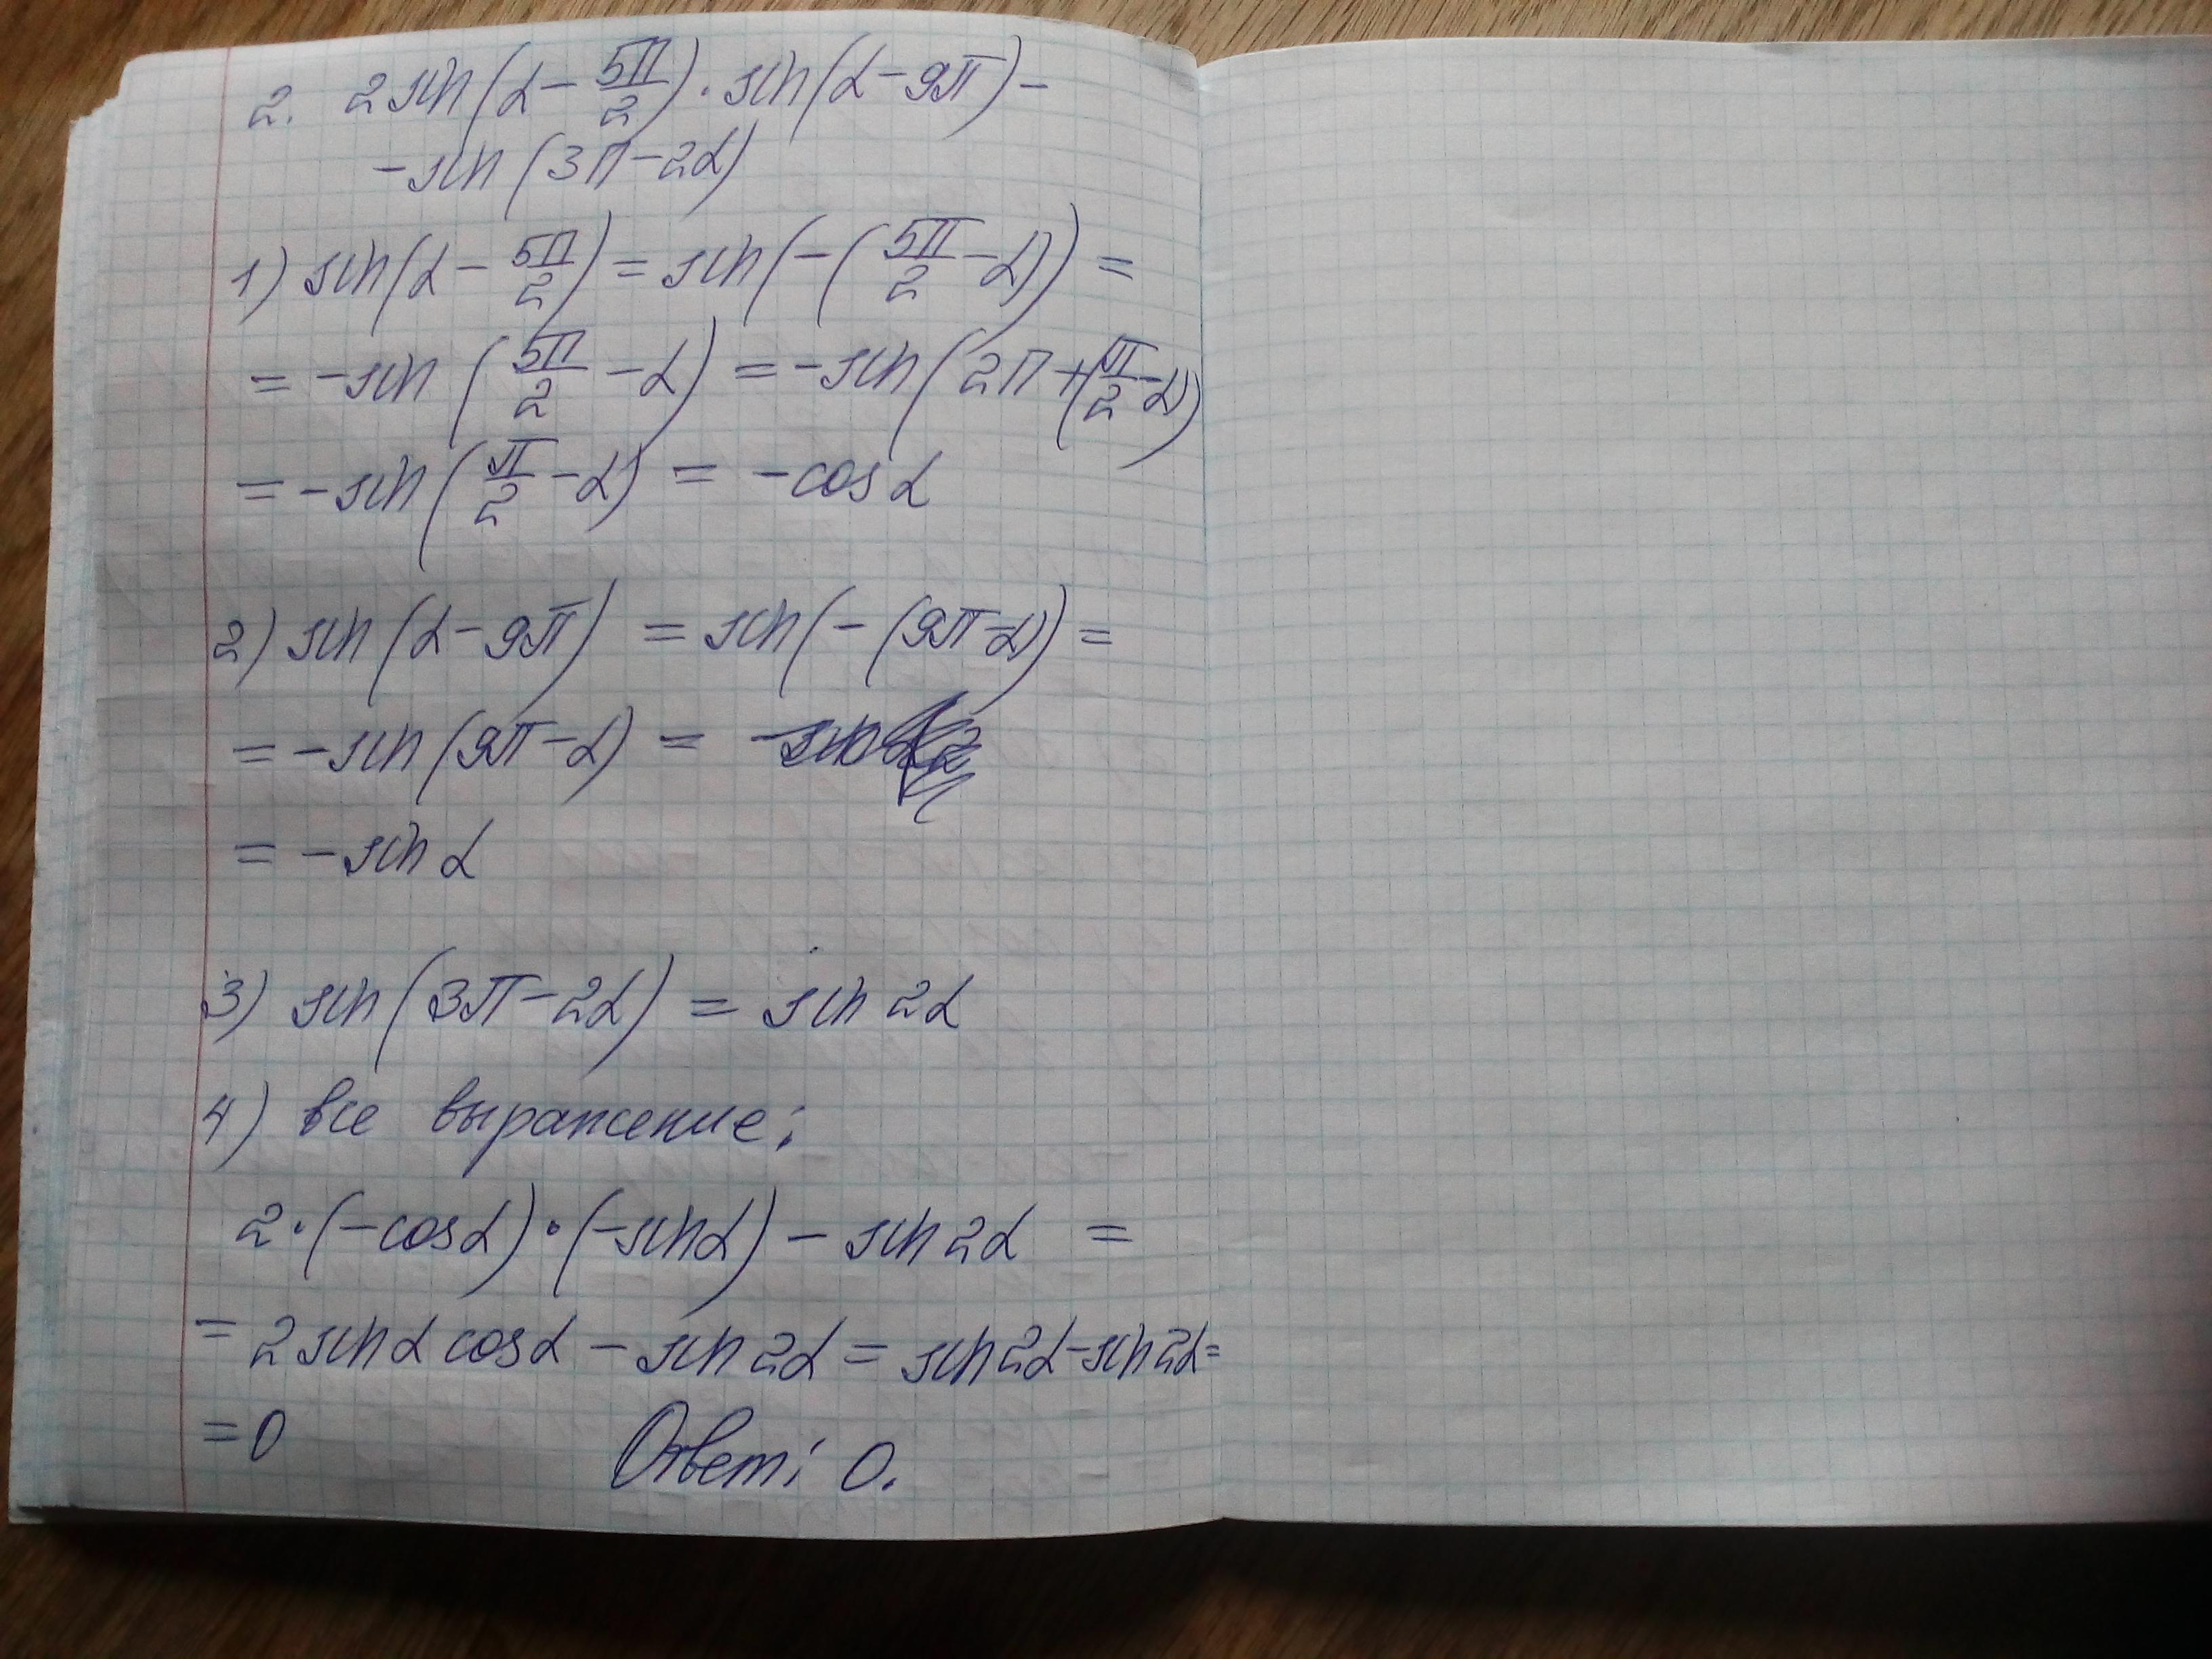 2. 2sin(α - 5π/2) · sin(α - 9π) -
- sin(3π - 2α)
1) sin(α - 5π/2) = sin(-(5π/2 - α)) =
= -sin(5π/2 - α) = -sin(2π + (π/2 - α))
= -sin(π/2 - α) = -cos α
2) sin(α - 9π) = sin(-(9π - α)) =
= -sin(9π - α) =
= -sin α
3) sin(3π - 2α) = sin 2α
4) все выражение:
2·(-cos α)·(-sin α) - sin 2α =
= 2 sin α cos α - sin 2α = sin 2α - sin 2α =
= 0 Ответ: 0.